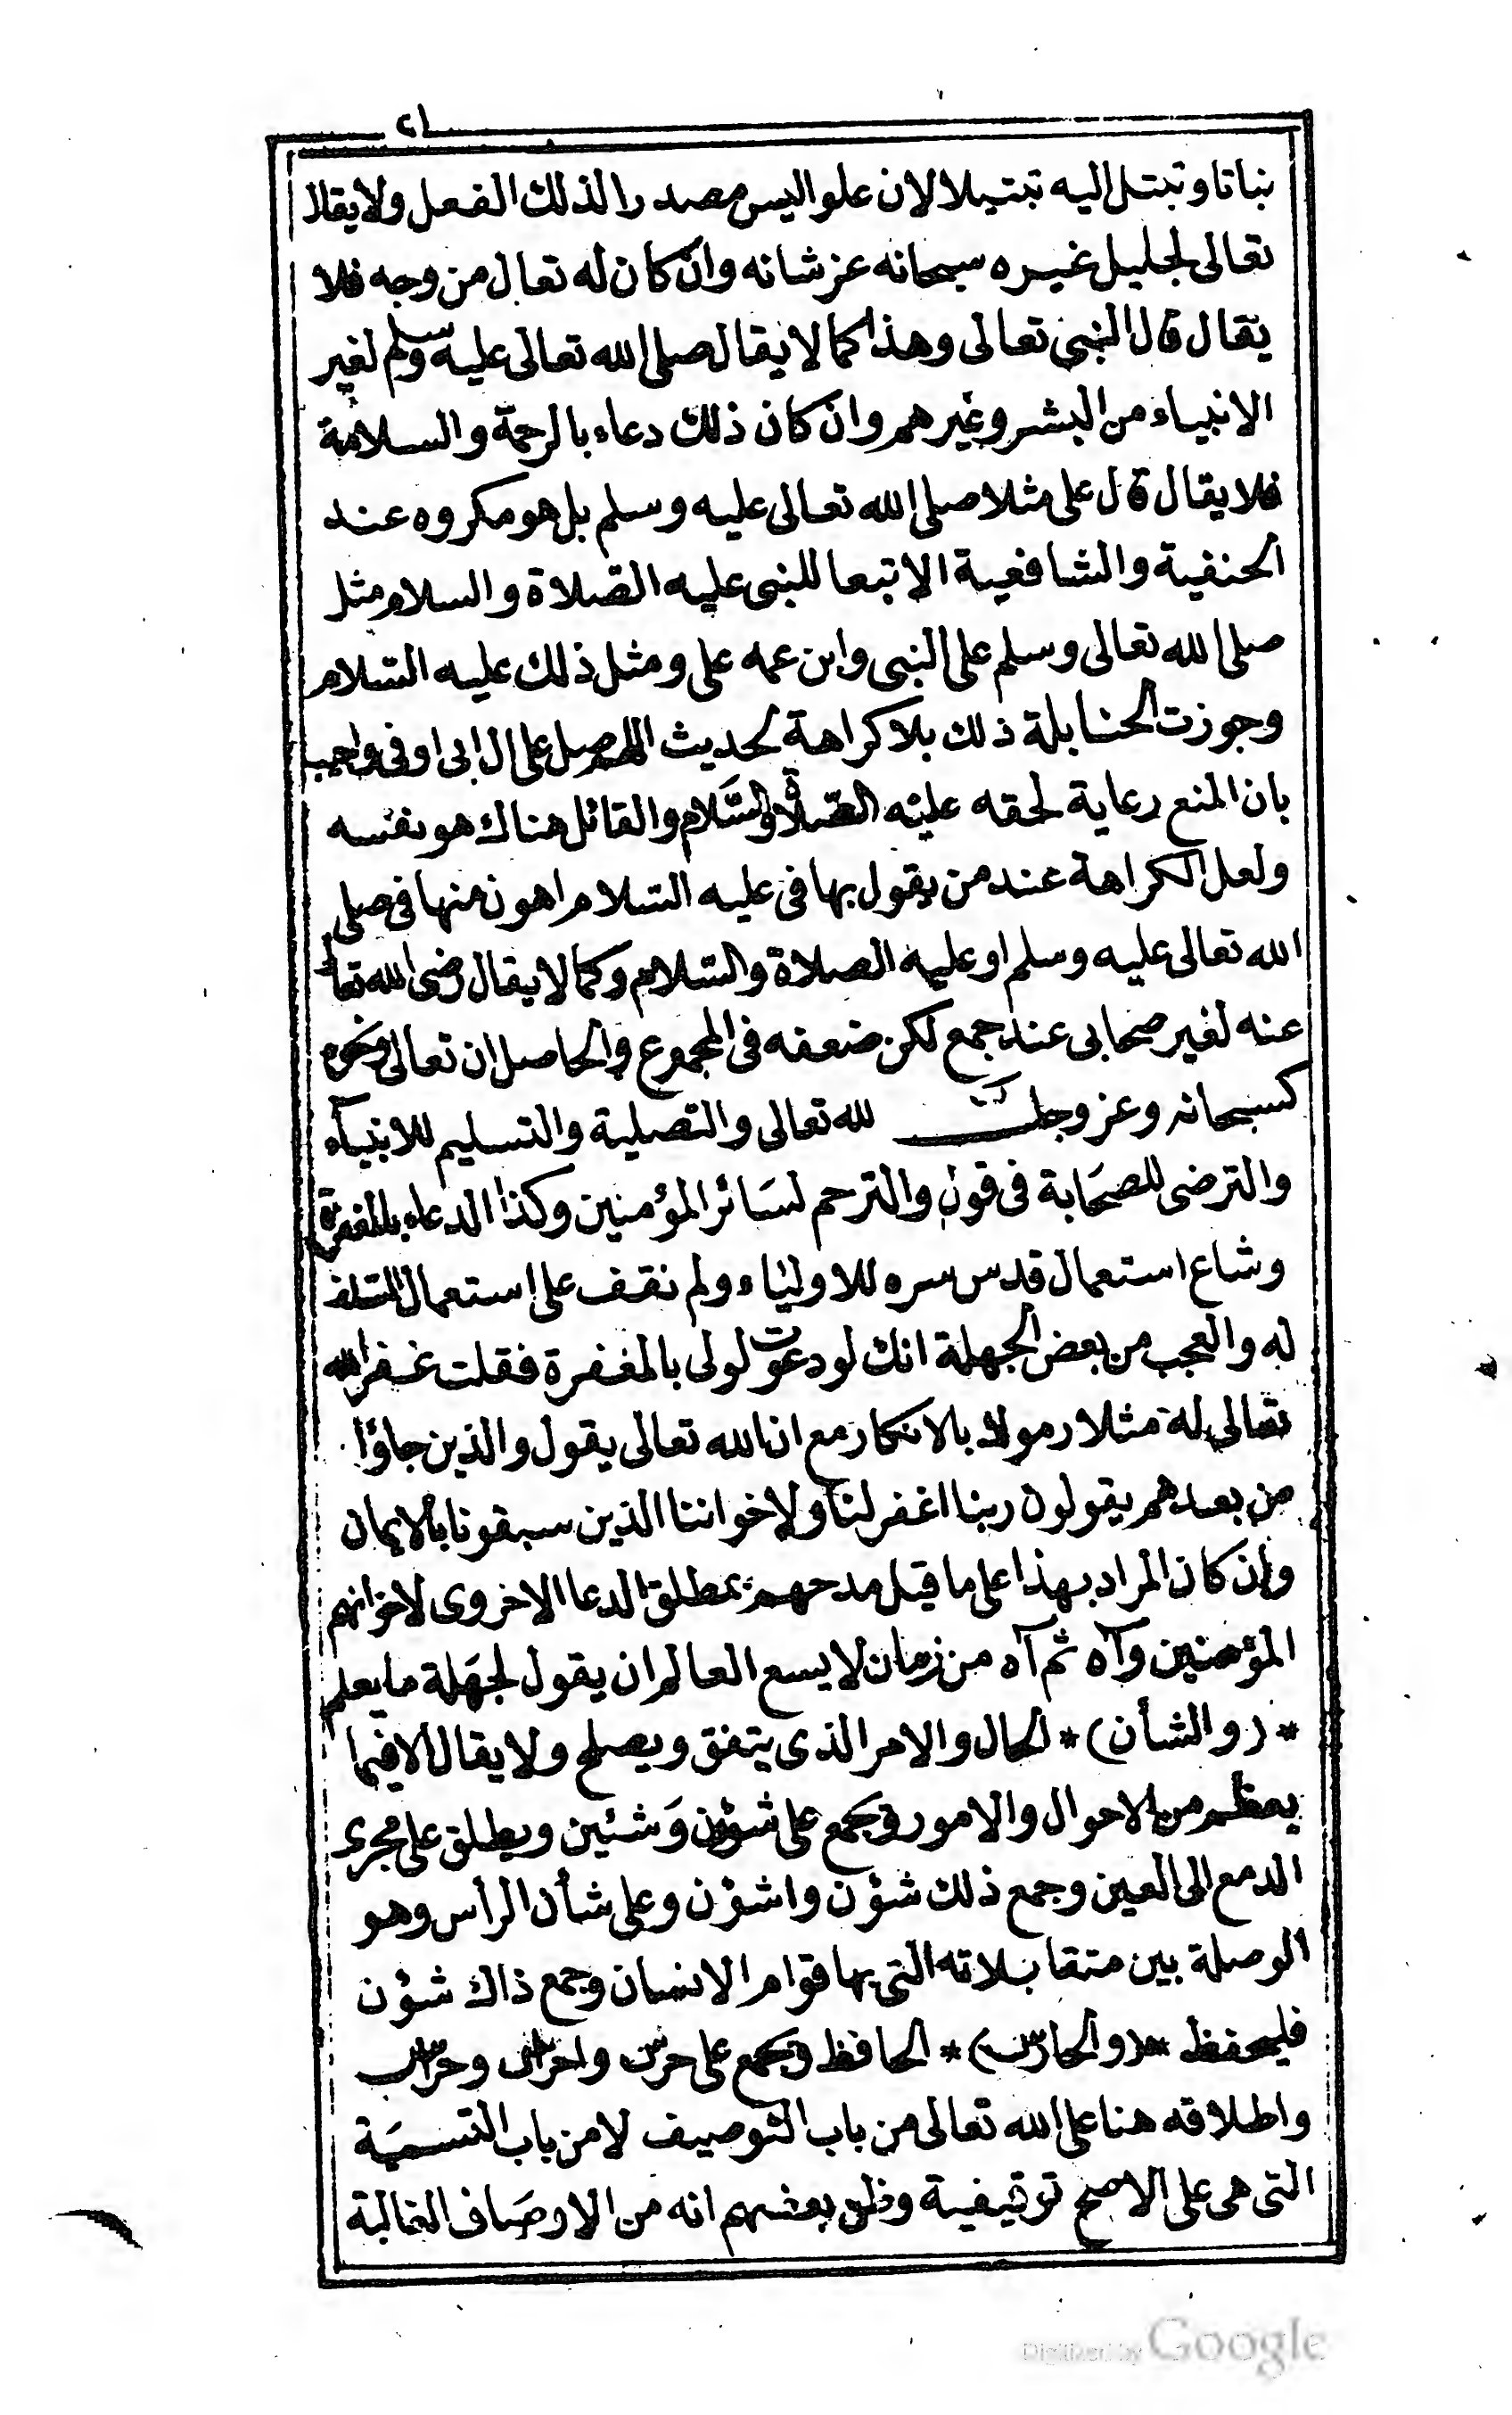 ٢١
نباتا وتبتل اليه تبتيلا لان علوا ليس مصدرا لذلك الفعل ولا يقال
تعالى لجليل غيره سبحانه عز شانه وان كان له تعال من وجه فلا
يقال قال النبي تعالى وهذا كما لا يقال صلى الله تعالى عليه وسلم لغير
الانبياء من البشر وغيرهم وان كان ذلك دعاء بالرحمة والسلامة
فلا يقال قال على مثلا صلى الله تعالى عليه وسلم بل هو مكروه عند
الحنفية والشافعية الا تبعا للنبى عليه الصلاة والسلام مثل
صلى الله تعالى وسلم على النبى وابن عمه على ومثل ذلك عليه السلام
وجوزت الحنابلة ذلك بلا كراهة لحديث اللهم صل على ال ابى اوفى واجيب
بان المنع رعاية لحقه عليه الصلاة والسَّلام والقائل هناك هو نفسه
ولعل الكراهة عند من يقول بها فى عليه السلام اهون منها فى صلى
الله تعالى عليه وسلم او عليه الصلاة والسلام وكما لا يقال رضى الله تعالى
عنه لغير صحابى عند جمع لكن ضعفه فى المجموع والحاصل ان تعالى ونحوه
كسبحانه وعز وجل لله تعالى والتصلية والتسليم للانبيآء
والترضى للصحَابة فى قول والترحم لسَائر المؤمنين وكذا الدعاء بالمغفرة
وشاع استعمال قدس سره للاولياء ولم نقف على استعمال السلف
له والعجب من بعض الجهلة انك لو دعوت لولى بالمغفرة فقلت غفر الله
تعالى له مثلا رموك بالانكار مع ان الله تعالى يقول والذين جاؤا
من بعدهم يقولون ربنا اغفر لنا ولاخواننا الذين سبقونا بالايمان
وان كان المراد بهذا على ما قيل مدحهم بمطلق الدعا الاخروى لاخوانهم
المؤمنين وآه ثم آه من زمان لا يسع العالم ان يقول لجهَلة ما يعلم
* (والشأن) * الحال والامر الذى يتفق ويصلح ولا يقال الا فيما
يعظم من الاحوال والامور ويجمع على شؤون وَشئين ويطلق على مجرى
الدمع الى العين وجمع ذلك شؤن واشؤن وعلى شأن الرأس وهو
الوصلة بين متقابلاته التى بها قوام الانسان وجمع ذاك شؤن
فليحفظ * (والحارس) * الحافظ ويجمع على حرس واحراس وحرّاس
واطلاقه هنا على الله تعالى من باب التوصيف لا من باب التسميَة
التى هى على الاصح توقيفية وظن بعضهم انه من الاوصَاف الغالبة
Digitized by Google